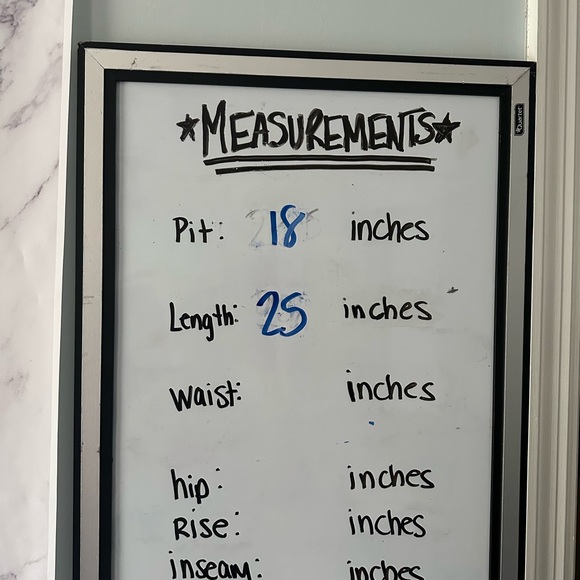 ★MEASUREMENTS★
Quartet
Pit: 18 inches
Length: 25 inches
waist: inches
hip: inches
Rise: inches
inseam: inches